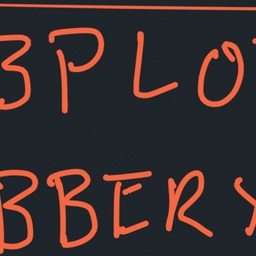 BPLO
BBERY